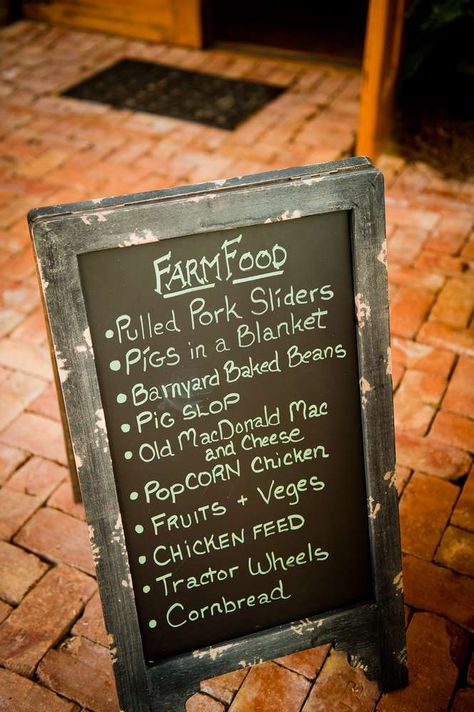 FarmFood
• Pulled Pork Sliders
• PIGS in a Blanket
• Barnyard Baked Beans
• PIG SLOP
• Old MacDonald Mac
and Cheese
• PopCORN Chicken
• FRUITS + Veges
• CHICKEN FEED
• Tractor Wheels
• Cornbread